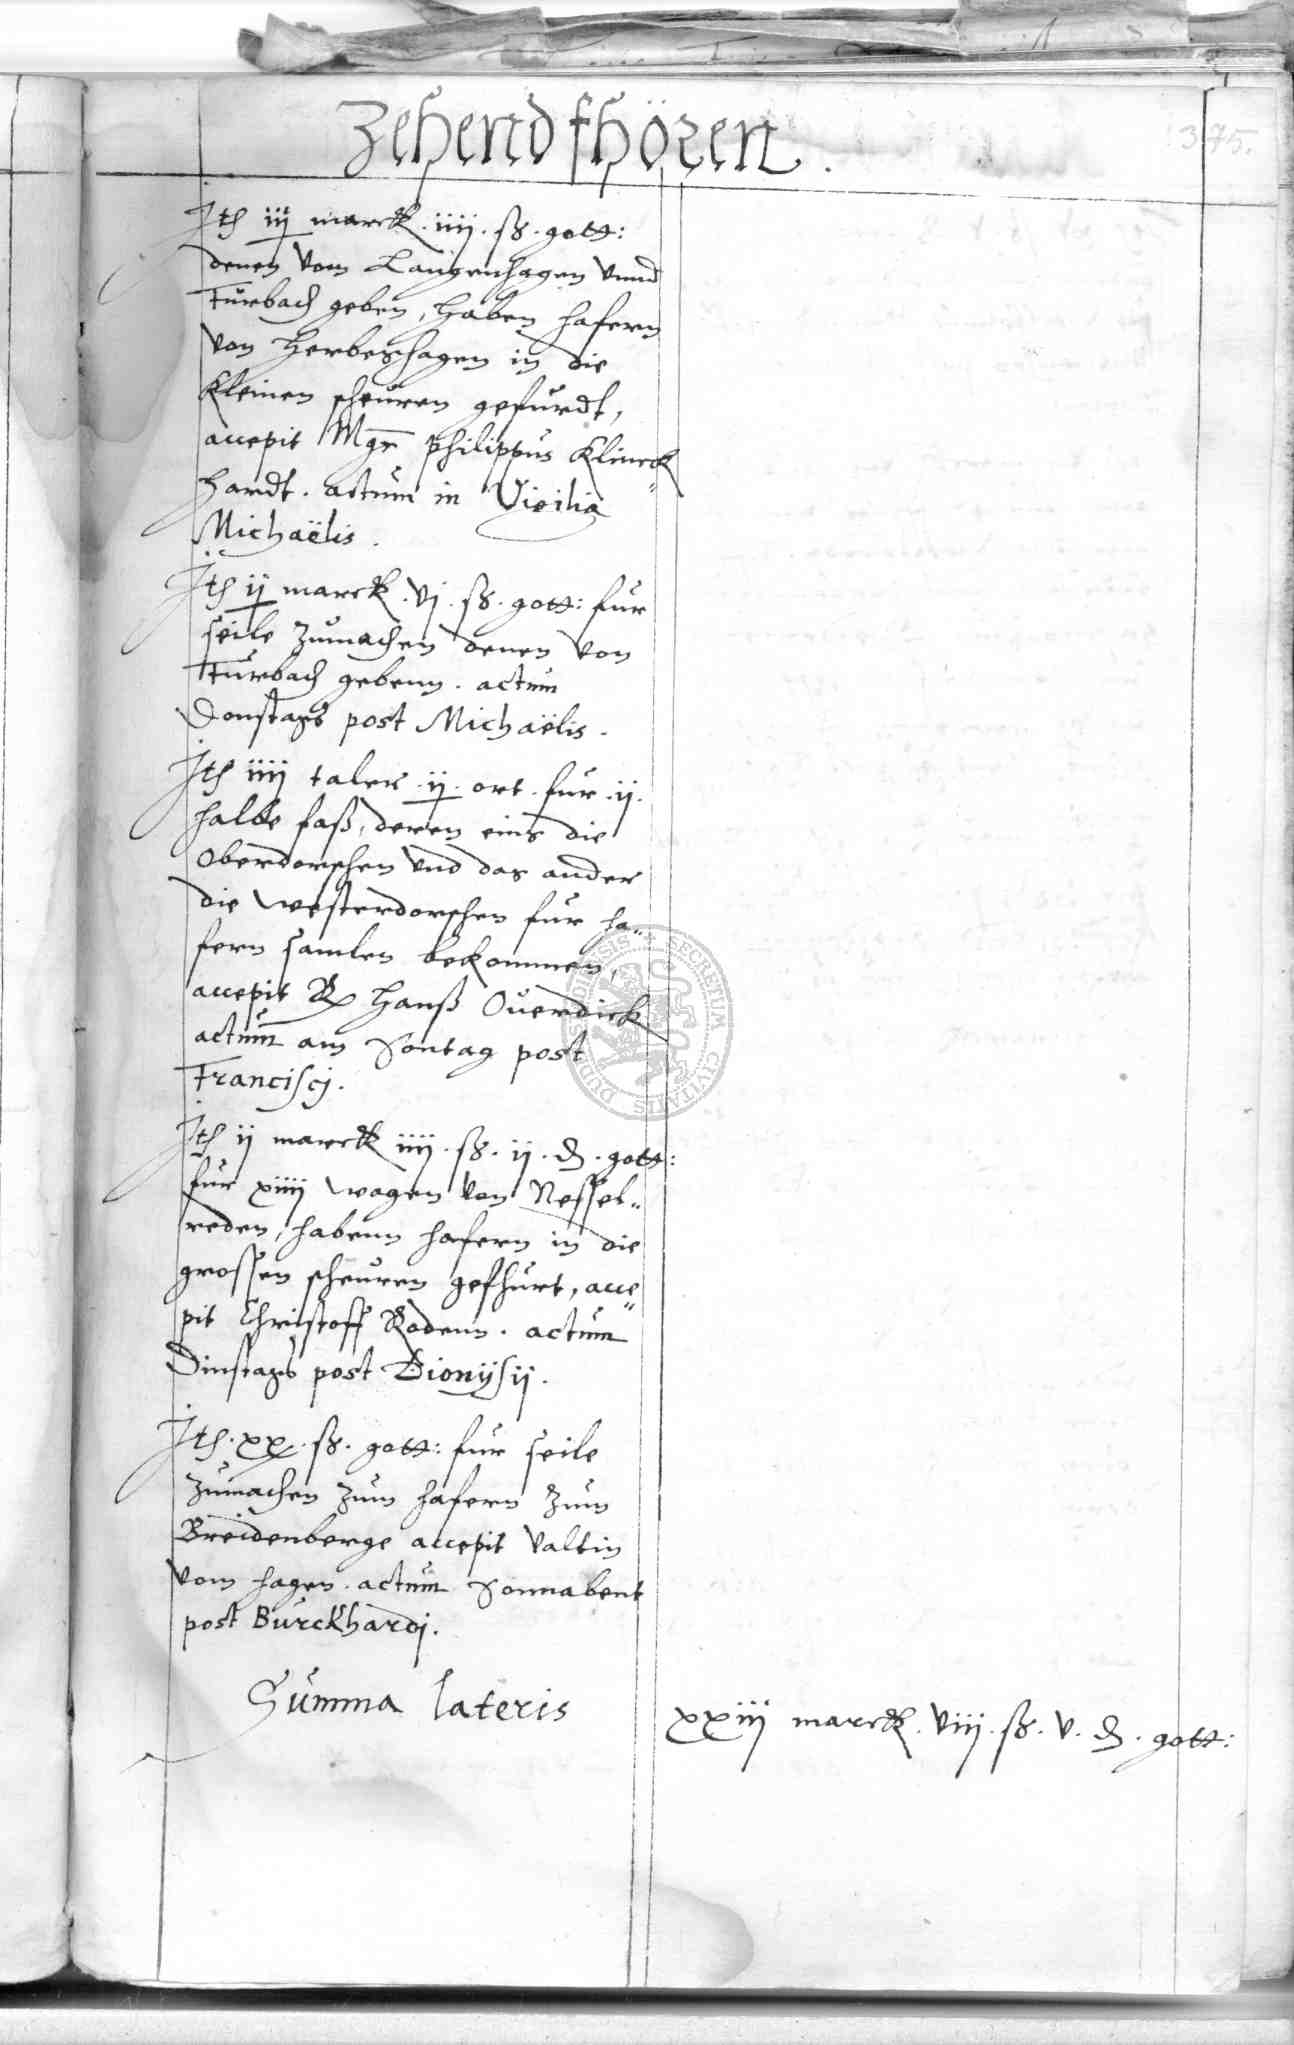 Zehendfhören.
375.
Ith iij marck. iiij. ß. gott:
denen vom Langenhagen vnnd
Fürbach geben, haben hafern
von Herbershagen in die
Kleinen scheuren gefurdt,
accepit Mgr Philippus Klinck„
hardt. actum in Vigilia
Michaëlis.
Ith ij marck. vj. ß. gott: fur
seile zumachen denen von
Fürbach gebenn. actum
Donstags post Michaëlis.
Ith iiij taler. ij. ort. fur. ij.
halbe faß, deren eins die
Oberdorschen vnd das ander
die Westerdorschen fur ha„
fern samlen bekommen,
accepit R Hanß Ouerdick
actum am Sontag post
Francisci.
Ith ij marck iiij. ß. ij. d. gott:
fur xiiij wagen von Nessel„
reden, habenn hafern in die
grossen scheuren gefhurt, acce„
pit Christoff Rodenn. actum
Dinstags post Dionijsij.
Ith. xx. ß. gott: fur seile
zumachen zum hafern zum
Breidenberge accepit Valtin
vom Hagen. actum Sonnabent
post Burckhardj.
Summa lateris
xxiij marck. viij. ß. v. d. gott:
SECRETUM CIVITATIS DUDERSTADIENSIS